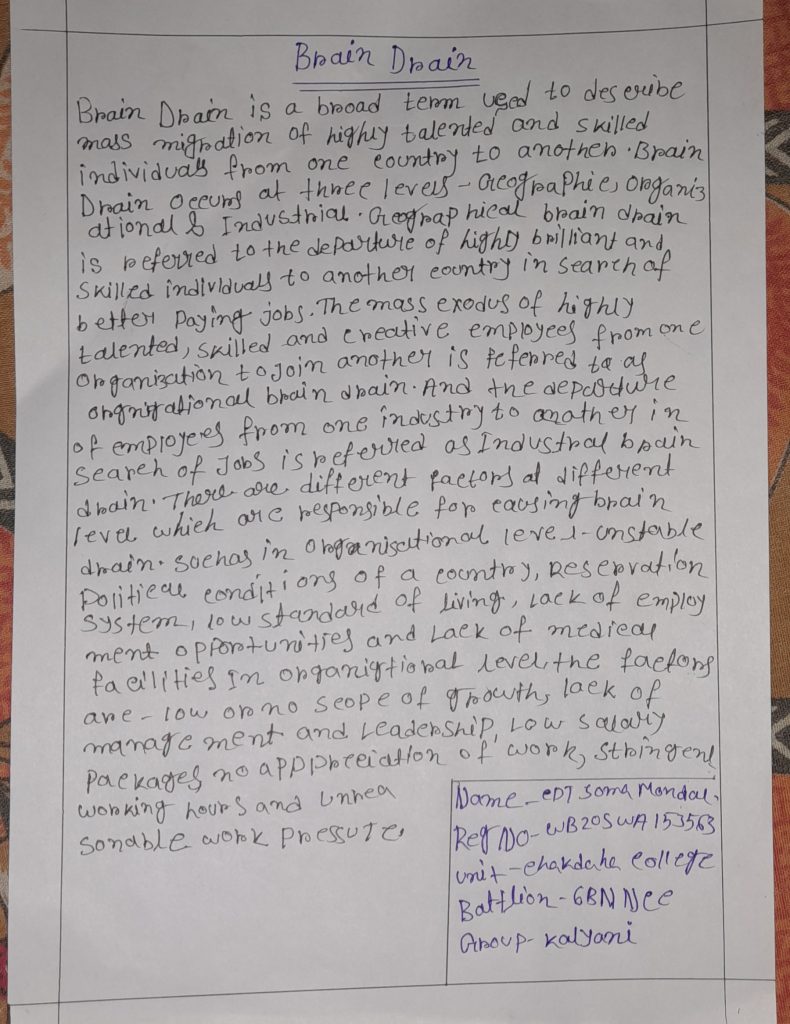 Brain Drain
Brain Drain is a broad term used to describe
mass migration of highly talented and skilled
individuals from one country to another. Brain
Drain occurs at three levels - Geographic, Organiz
ational & Industrial. Geographical brain drain
is referred to the departure of highly brilliant and
skilled individuals to another country in search of
better paying jobs. The mass exodus of highly
talented, skilled and creative employees from one
organization to join another is referred to as
orgnizational brain drain. And the departure
of employees from one industry to another in
search of Jobs is referred as Industral brain
drain. There are different factors at different
level which are responsible for causing brain
drain. Suchas in organisational level - unstable
Political conditions of a country, Reservation
system, low standard of living, lack of employ
ment opportunities and Lack of medical
facilities In organigtional level, the factors
are - low or no scope of growth, lack of
management and Leadership, Low salary
packages, no apppreciation of work, stringent
working hours and unrea
sonable work pressure.
Name - CDT Soma Mondal.
Reg No - WB20SWA153563
Unit - Chakdaha College
Battlion - 6BN NCC
Group - Kalyani